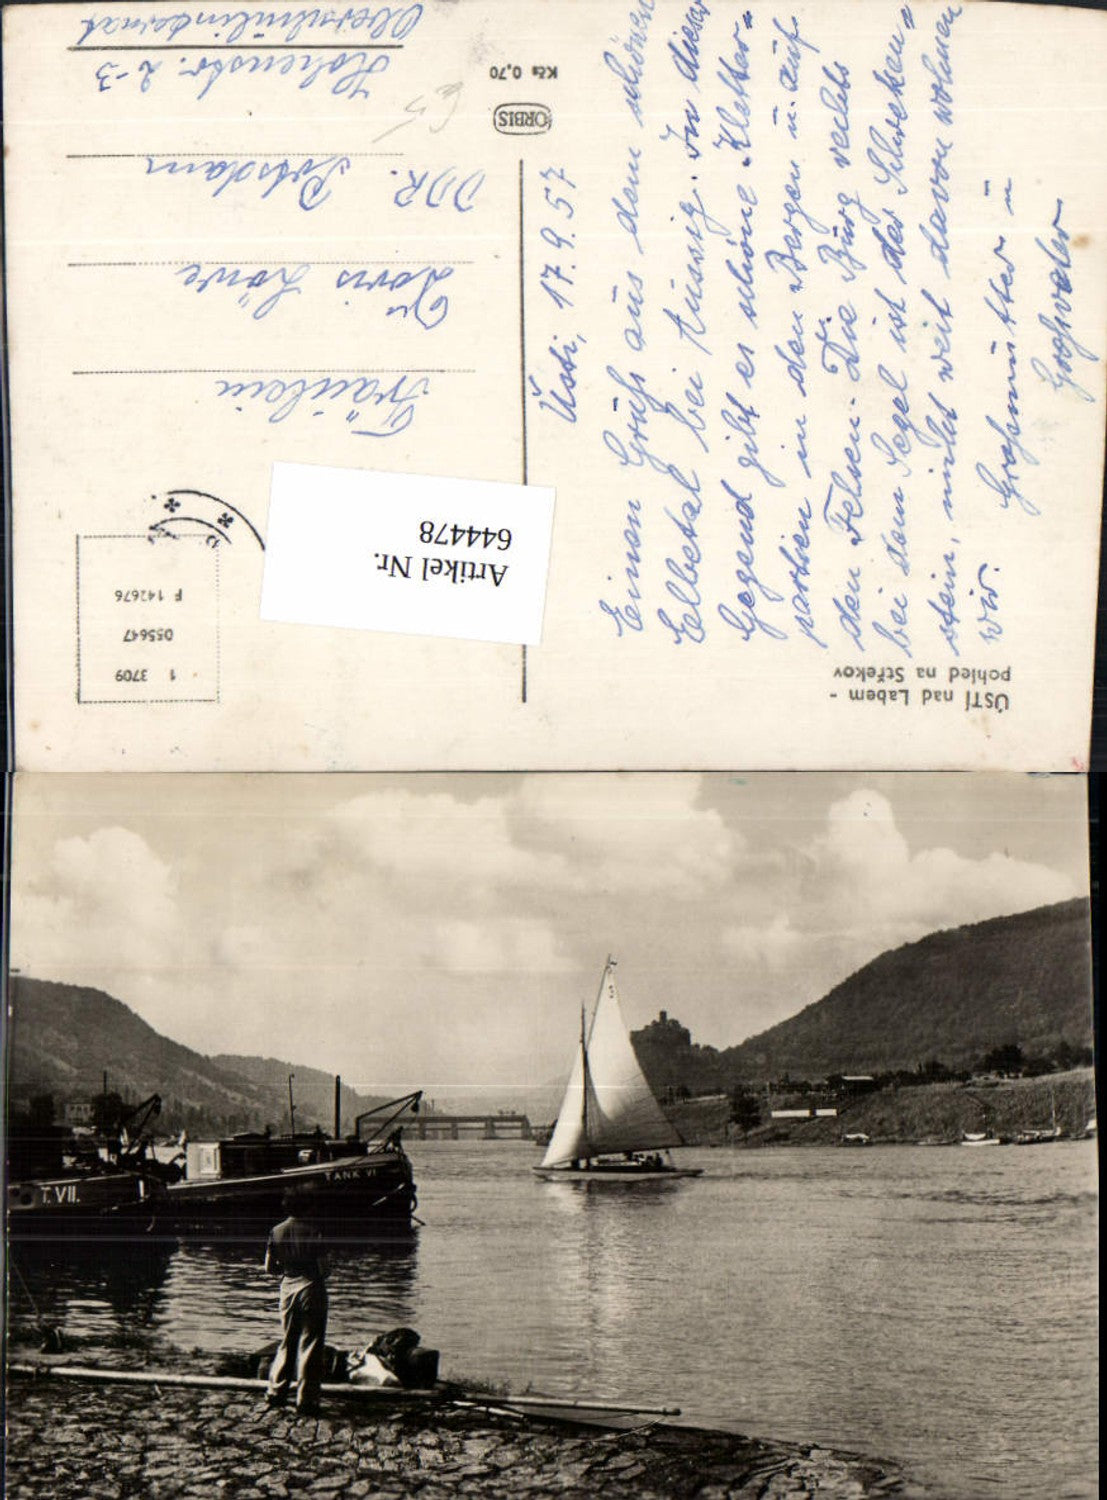 ÚSTÍ nad Labem -
pohled na Střekov
Ústi, 17.9.57
Einen Gruß aus dem schönen
Elbetal bei Aussig. In dieser
Gegend gibt es schöne Kletter=
partien in den Bergen u. auf
den Felsen. Die Burg rechts
bei dem Segel ist der Schrecken=
stein, nicht weit davon wohnen
wir.
Großmutter u
Großvater
ORBIS
Kčs 0,70
1 3709
055647
F 142676
Artikel Nr.
644478
Fräulein
Doris Löwe
DDR. Potsdam
Hohenstr. 2-3
T. VII.
TANK VI